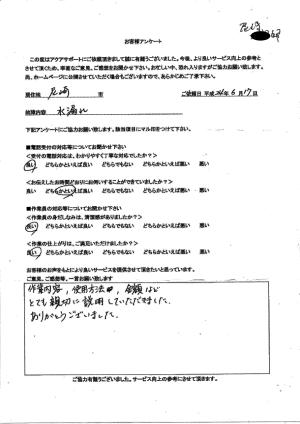 尼崎
お客様アンケート
この度はアクアサポートにご依頼頂きまして誠に有難うございました。今後、より良いサービス向上の参考と
させて頂くため、率直なご意見、ご感想をお聞かせ下さい。お忙しい中、恐れ入りますがご協力お願い致します。
尚、ホームページに公開させていただく場合もございますので、あらかじめご了承下さい。
居住地 尼崎 市 ご依頼日 平成 24年 6月 17日
故障内容 水漏れ
下記アンケートにご協力お願い致します。該当項目にマル印をつけて下さい。
■電話受付の対応等についてお聞かせ下さい
<受付の電話対応は、わかりやすく丁寧な対応でしたか?>
良い どちらかといえば良い どちらでもない どちらかといえば悪い 悪い
<お伝えしたお時間どおりにお伺いすることができていましたか?>
良い どちらかといえば良い どちらでもない どちらかといえば悪い 悪い
■作業員の対応等についてお聞かせ下さい
<作業員の身だしなみは、清潔感がありましたか?>
良い どちらかといえば良い どちらでもない どちらかといえば悪い 悪い
<作業の仕上がりは、ご満足いただけましたか?>
良い どちらかといえば良い どちらでもない どちらかといえば悪い 悪い
お客様のお声をもとにより良いサービスを提供させて頂きたいと思っています。
ご意見、ご感想等、一言お願い致します
作業内容,使用方法,金額など
とても親切に説明していただきました。
ありがとうございました。
ご協力有難うございました。サービス向上の参考にさせて頂きます。